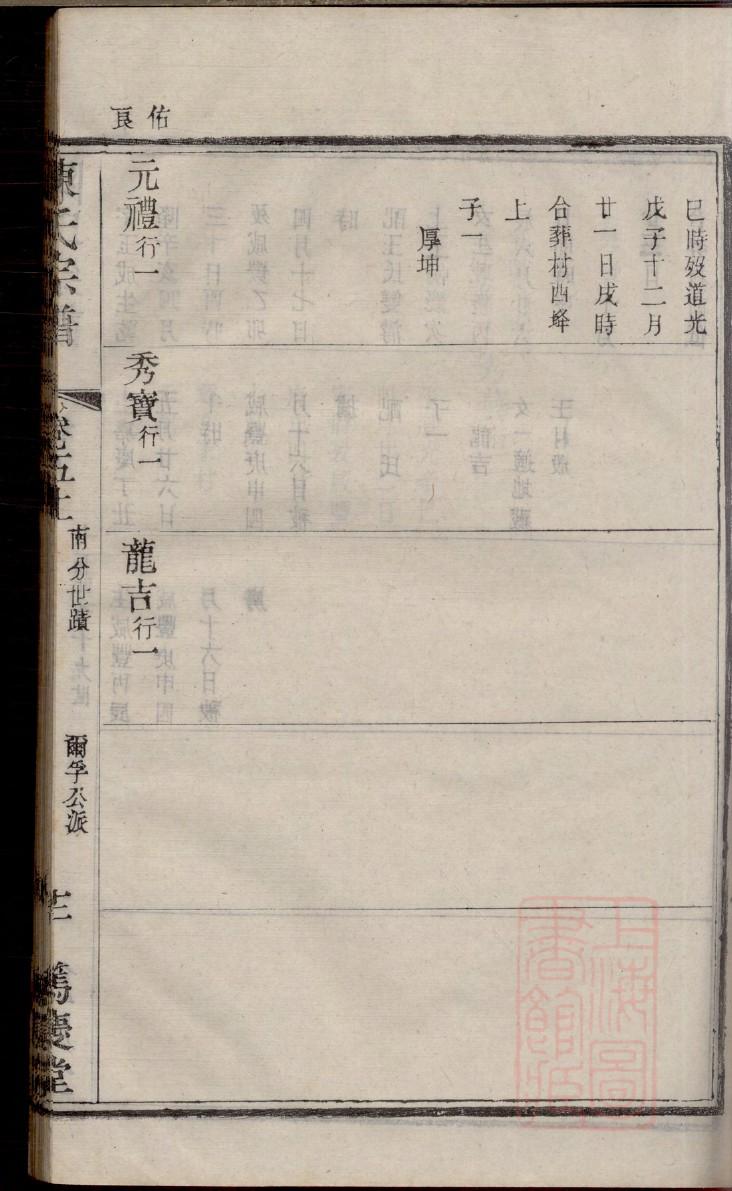 佑良
巳時歿道光
戊子十二月
廿一日戌時
合葬村西峰
上
子一
厚坤
元禮行一
秀寶行一
龍吉行一
陳氏宗譜
卷五上
南分世蹟
爾孚公派
篤慶堂
上海圖
書館藏